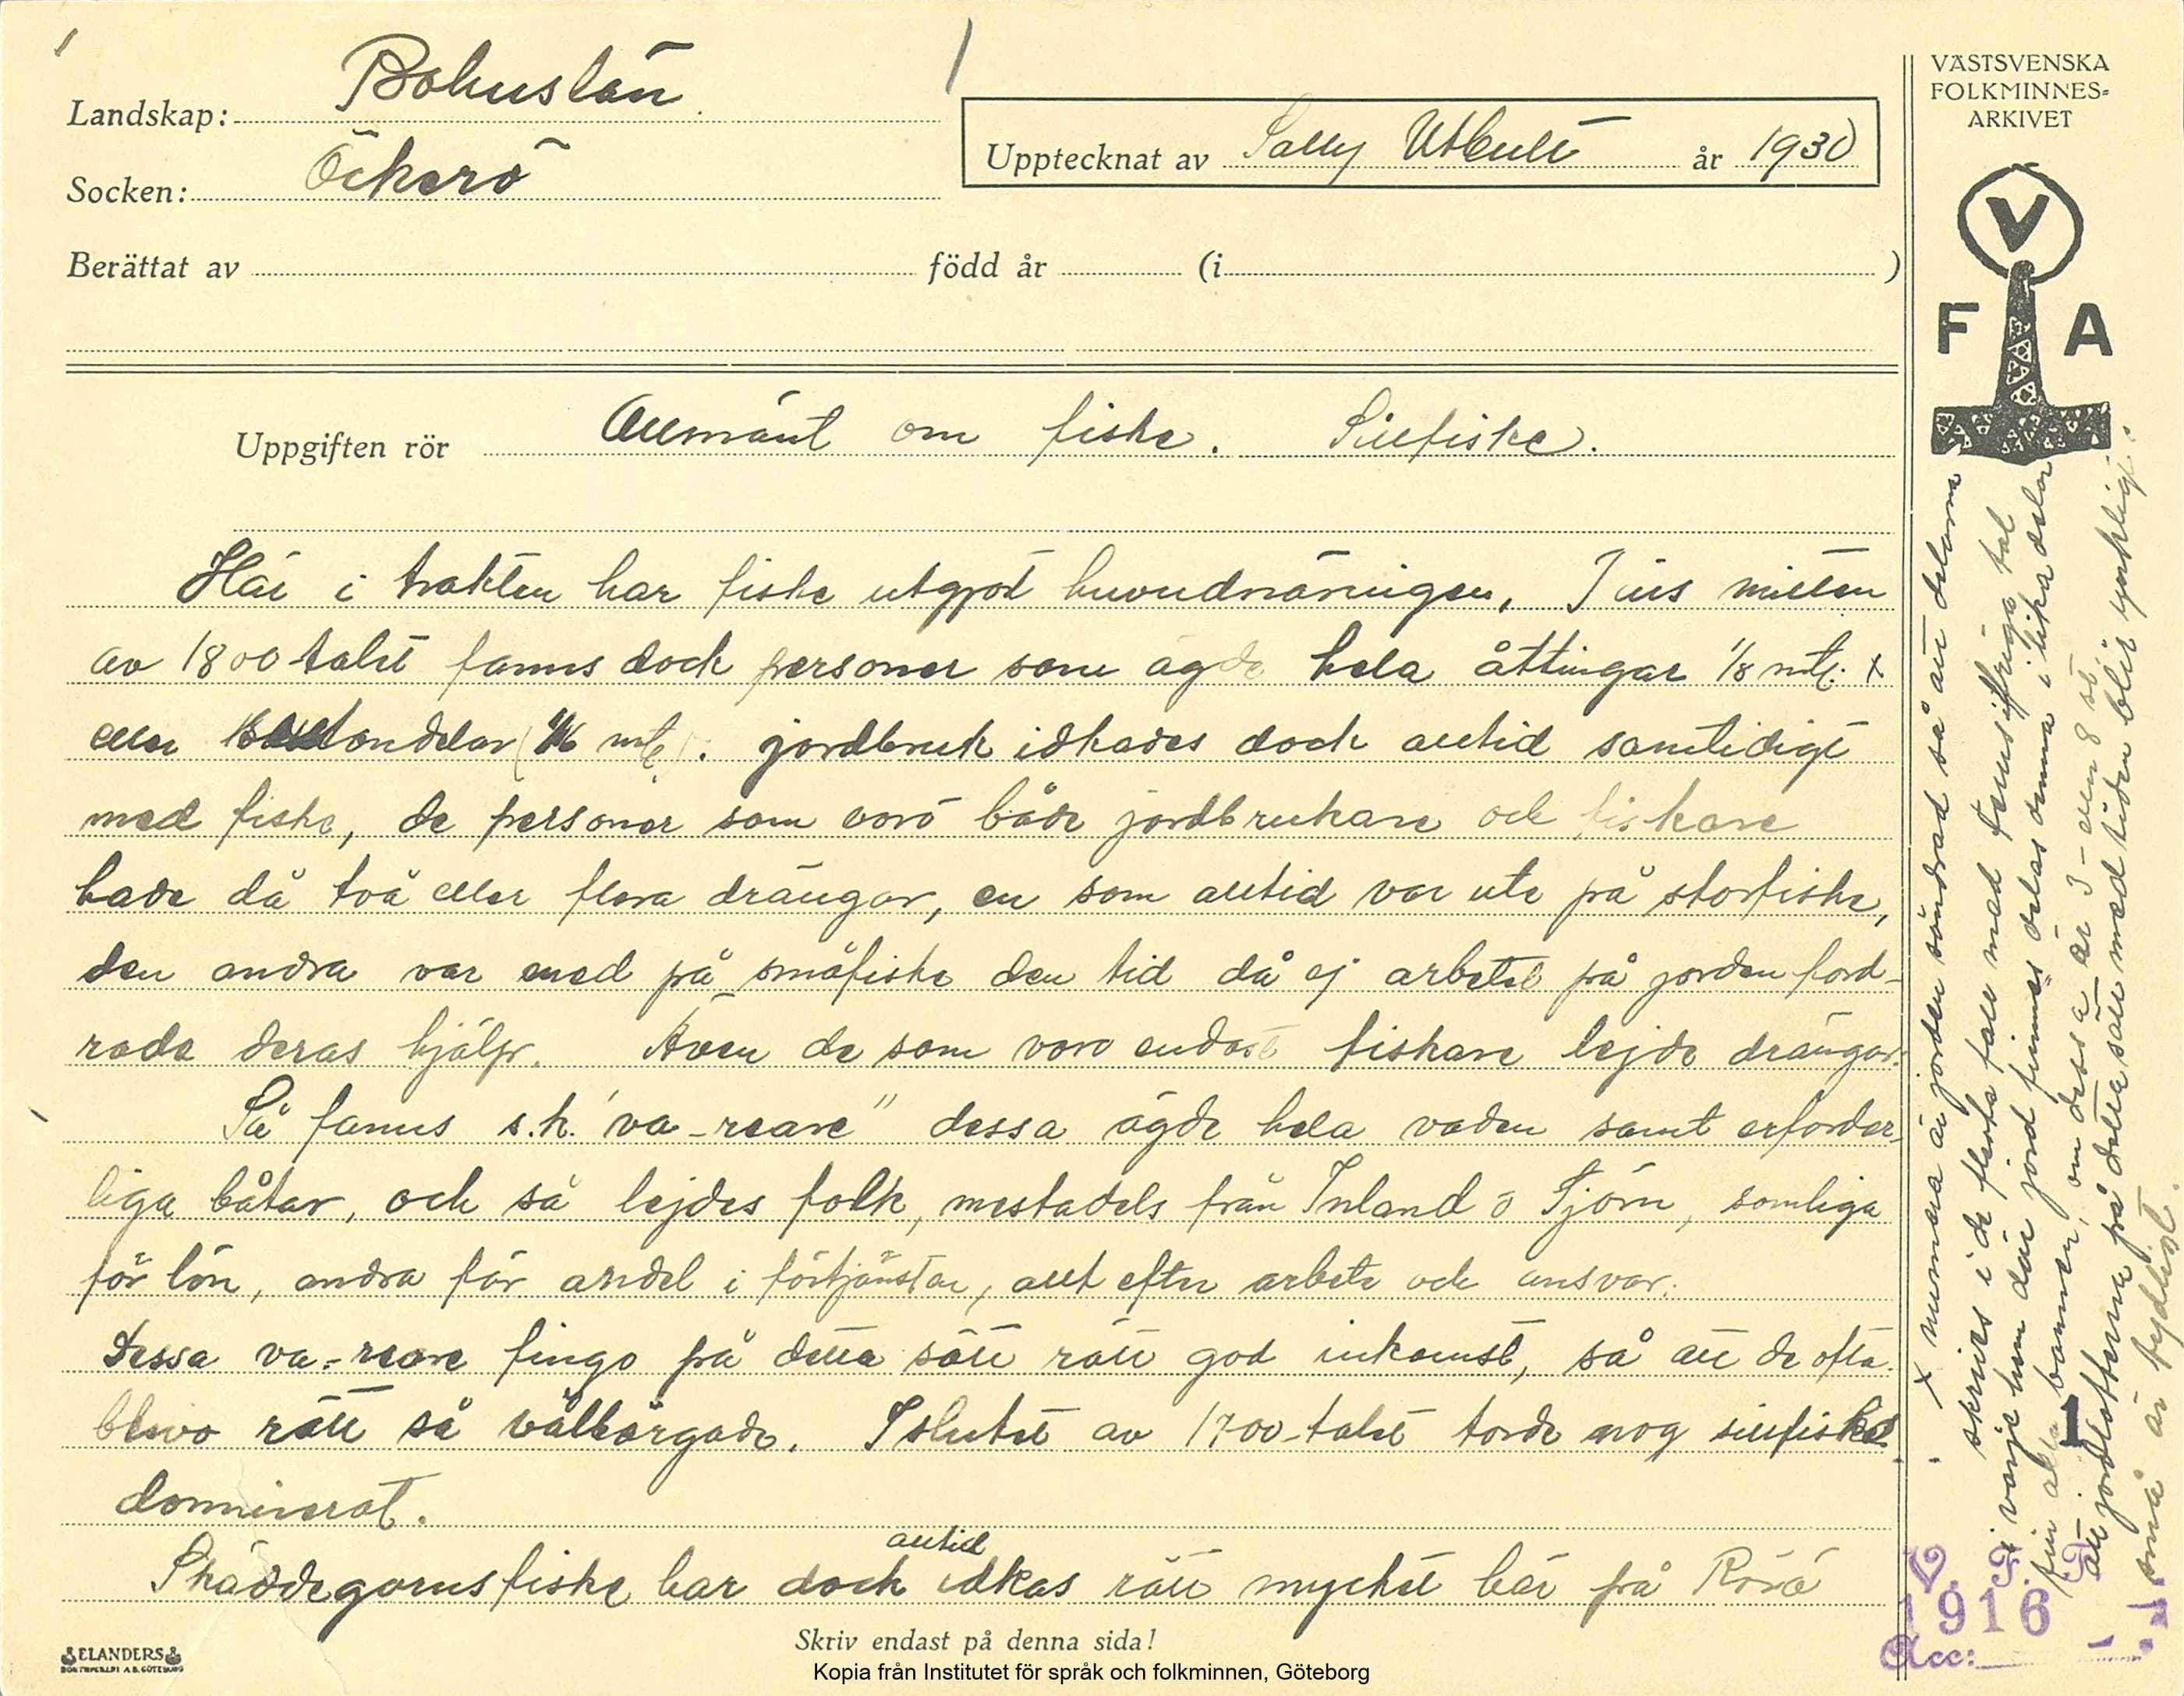 Landskap: Bohuslän
Socken: Öckerö
Upptecknat av Sally Utbult år 1930
Berättat av född år (i )
VÄSTSVENSKA
FOLKMINNES=
ARKIVET
V
F A
Uppgiften rör Allmänt om fiske. Sillfiske.
Här i trakten har fiske utgjort huvudnäringen, I mitten
av 1800 talet fanns dock personer som ägde hela åttingar 1/8 mtl. x
eller ondelar (1/16 mtl). jordbruk idkades dock alltid samtidigt
med fiske, de personer som voro både jordbrukare och fiskare
hade då två eller flera drängar, en som alltid var ute på storfiske,
den andra var med på småfiske den tid då ej arbetet på jorden ford-
rade deras hjälp. Även de som voro endast fiskare lejde drängar.
Så fanns s.k. "va-reare" dessa ägde hela vaden samt erforder-
liga båtar, och så lejdes folk, mestadels från Inland o Tjörn, somliga
för lön, andra för andel i förtjänsten, allt efter arbete och ansvar.
Dessa va-reare fingo på detta sätt rätt god inkomst, så att de ofta
blevo rätt så välbärgade. I slutet av 1700-talet torde nog sillfisket
dominerat.
alltid
Skäddegarnsfiske har dock idkas rätt mycket här på Rörö
Skriv endast på denna sida!
ELANDERS
BOKTRYCKERI A.B. GÖTEBORG
Kopia från Institutet för språk och folkminnen, Göteborg
x numera är jorden söndrad så att delarna
skrives i de flesta fall med femsiffriga tal
i varje hem där jord finnes delas denna i lika delar
barnen, om dessa är 3- eller 8 st,
att jordlotterna på detta sätt med tiden blir ynkligt
små är tydligt.
1
V. F. A.
1916
Acc: